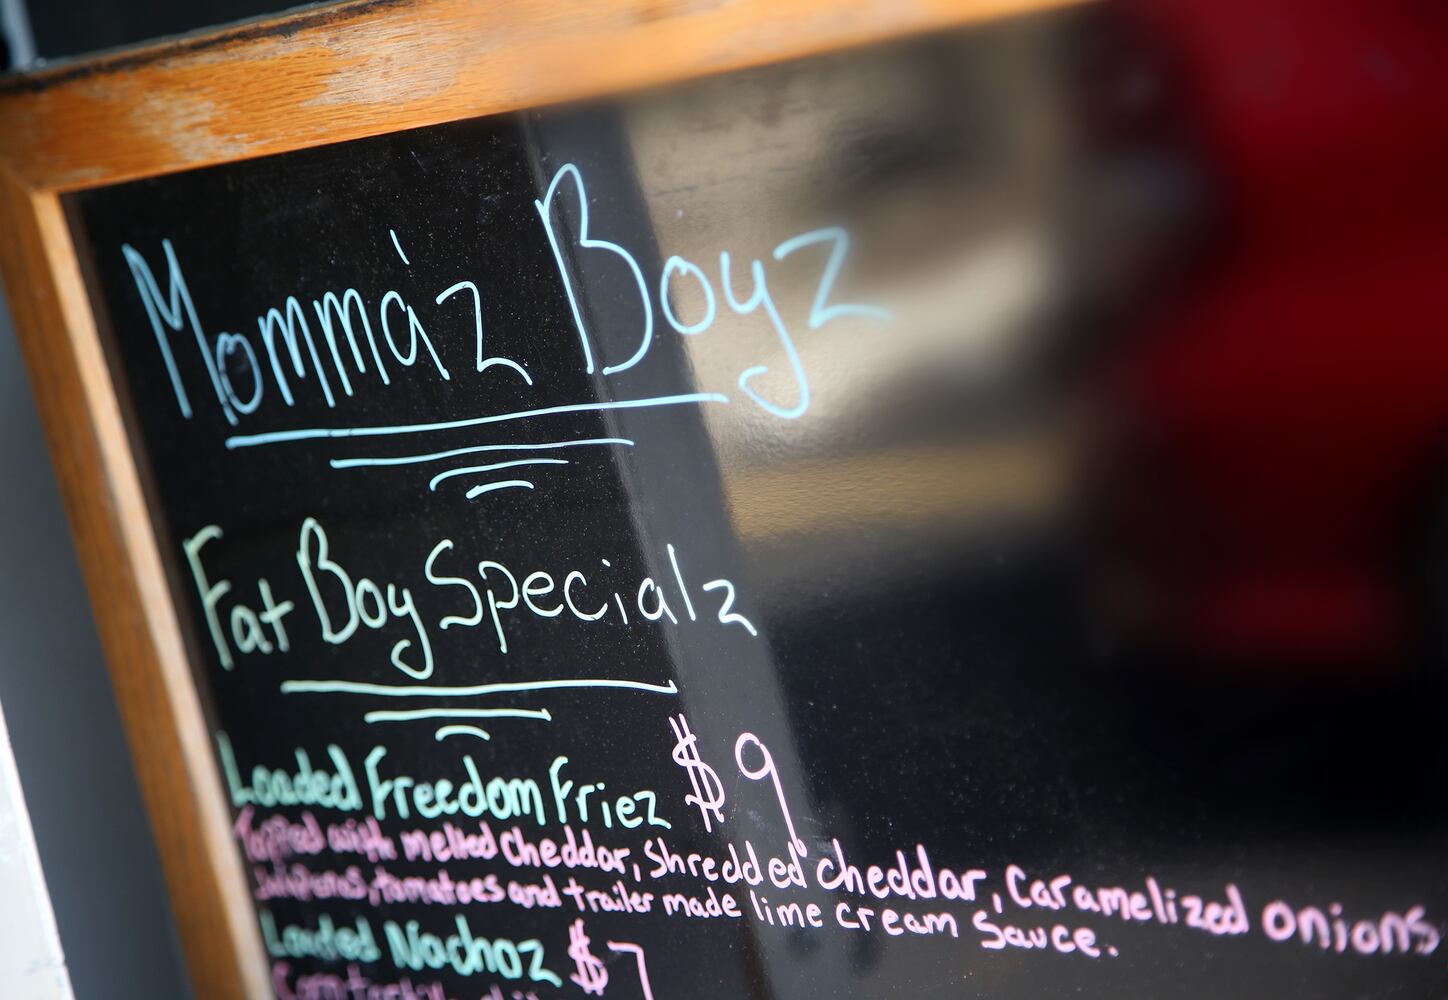 Momma'z Boyz
Fat Boy Specialz
Loaded Freedom Friez $9
Topped with melted cheddar, shredded cheddar, caramelized onions
Jalapenos, tomatoes and trailer made lime cream sauce.
Loaded Nachoz $7
Corn tortilla